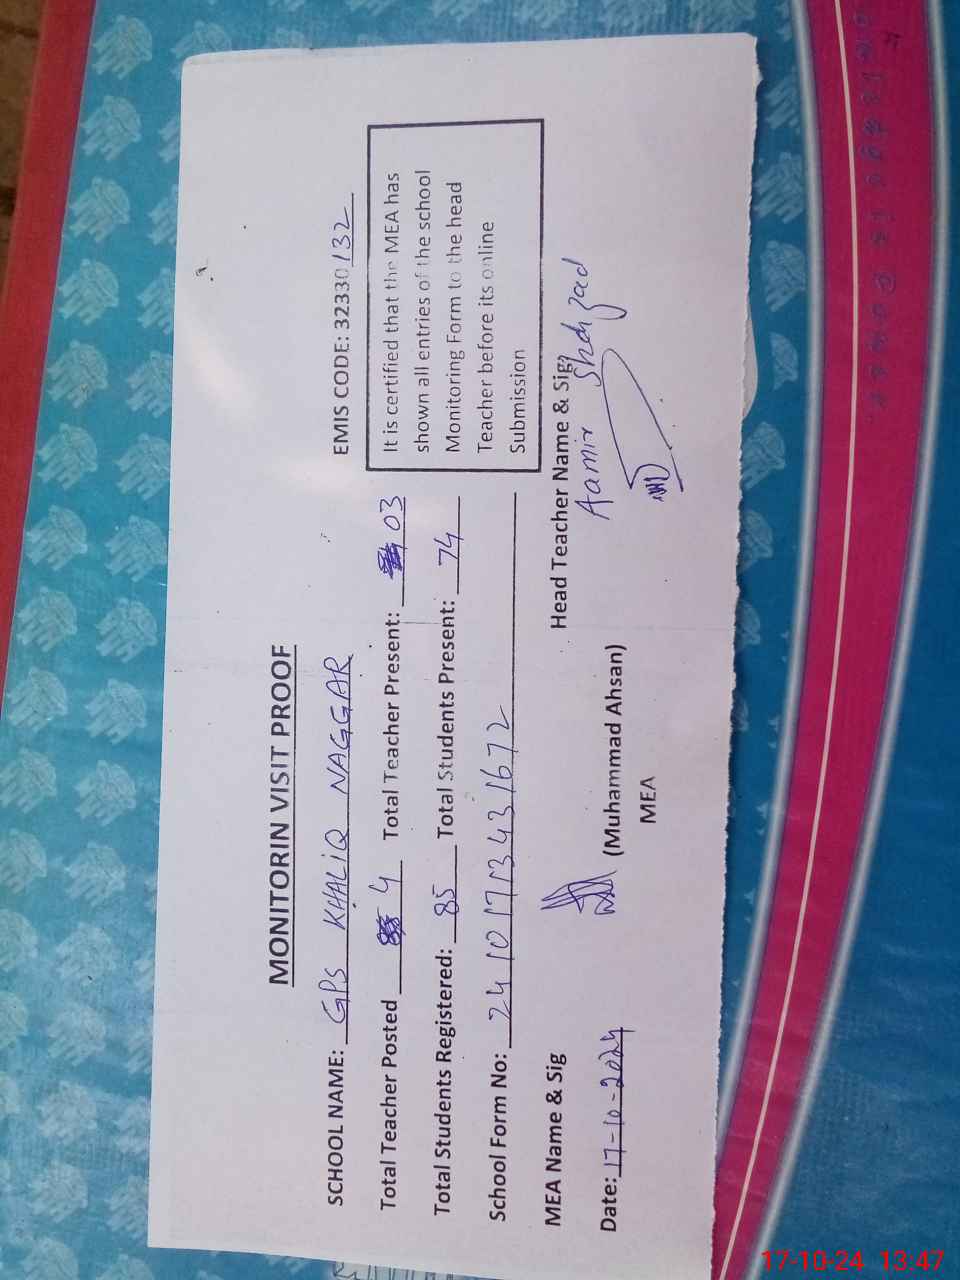 MONITORIN VISIT PROOF
SCHOOL NAME: GPS KHALIQ NAGGAR EMIS CODE: 32330132
Total Teacher Posted 4 Total Teacher Present: 03
Total Students Registered: 85 Total Students Present: 74
School Form No: 24101713431672
It is certified that the MEA has
shown all entries of the school
Monitoring Form to the head
Teacher before its online
Submission
MEA Name & Sig
(Muhammad Ahsan)
MEA
Date: 17-10-2024
Head Teacher Name & Sig?
Aamir Shahzad
17-10-24 13:47